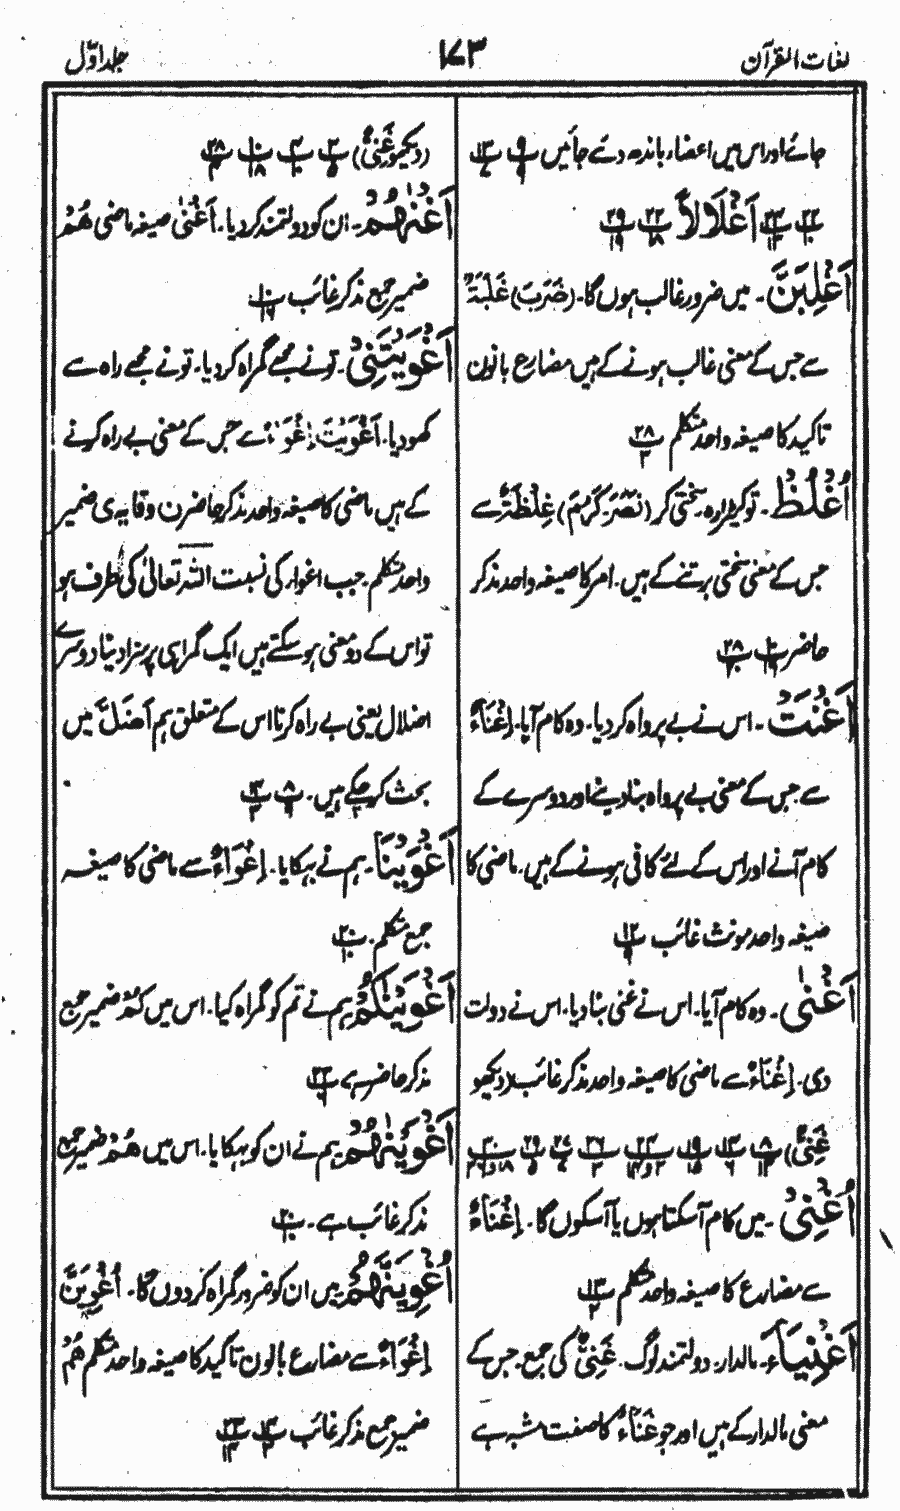 لغات القرآن
۱۷۳
جلد اوّل
جائے اور اس میں اعضاء باندھ دئے جائیں
اَغْلَالاً
اَغْلِبَنَّ۔ میں ضرور غالب ہوں گا۔ (ضَرَبَ) غَلَبَةٌ
سے جس کے معنی غالب ہونے کے ہیں مضارع بانون
تاکید کا صیغہ واحد متکلم ۲۸
اُغْلُظْ۔ تو کڑا رہ۔ سختی کر (نَصَرَ۔ كَرُمَ) غِلْظَةٌ سے
جس کے معنی سختی برتنے کے ہیں۔ امر کا صیغہ واحد مذکر
حاضر
اَغْنَتْ۔ اس نے بے پرواہ کر دیا۔ وہ کام آیا۔ اِغْنَاءٌ
سے جس کے معنی بے پرواہ بنا دینے اور دوسرے کے
کام آنے اور اس کے لئے کافی ہونے کے ہیں۔ ماضی کا
صیغہ واحد مونث غائب
اَغْنٰى۔ وہ کام آیا۔ اس نے غنی بنا دیا۔ اس نے دولت
دی۔ اِغْنَاءٌ سے ماضی کا صیغہ واحد مذکر غائب (دیکھو
غَنِیٌّ)
اُغْنِیْ۔ میں کام آسکتا ہوں یا آسکوں گا۔ اِغْنَاءٌ
سے مضارع کا صیغہ واحد متکلم
اَغْنِيَاءُ۔ مالدار۔ دولتمند لوگ۔ غَنِیٌّ کی جمع۔ جس کے
معنی مالدار کے ہیں اور جو غَنَاءٌ کا صفت مشبہ ہے
(دیکھو غَنِیٌّ)
اَغْنٰهُمْ۔ ان کو دولتمند کر دیا۔ اَغْنٰى صیغہ ماضی هُمْ
ضمیر جمع مذکر غائب
اَغْوَيْتَنِیْ۔ تو نے مجھے گمراہ کر دیا۔ تو نے مجھے راہ سے
کھو دیا۔ اَغْوَيْتَ، اِغْوَاءٌ سے جس کے معنی بے راہ کرنے
کے ہیں ماضی کا صیغہ واحد مذکر حاضر ن وقایہ ی ضمیر
واحد متکلم۔ جب اغوار کی نسبت اللہ تعالیٰ کی طرف ہو
تو اس کے دو معنی ہو سکتے ہیں ایک گمراہی پر سزا دینا دوسرے
اضلال یعنی بے راہ کرنا اس کے متعلق ہم اَضَلَّ میں
بحث کر چکے ہیں۔
اَغْوَيْنَا۔ ہم نے بہکایا۔ اِغْوَاءٌ سے ماضی کا صیغہ
جمع متکلم۔
اَغْوَيْنٰكُمْ ہم نے تم کو گمراہ کیا۔ اس میں كُمْ ضمیر جمع
مذکر حاضر ہے
اَغْوَيْنٰهُمْ ہم نے ان کو بہکایا۔ اس میں هُمْ ضمیر جمع
مذکر غائب ہے۔
اُغْوِيَنَّهُمْ میں ان کو ضرور گمراہ کردوں گا۔ اُغْوِيَنَّ
اِغْوَاءٌ سے مضارع بانون تاکید کا صیغہ واحد متکلم هُمْ
ضمیر جمع مذکر غائب